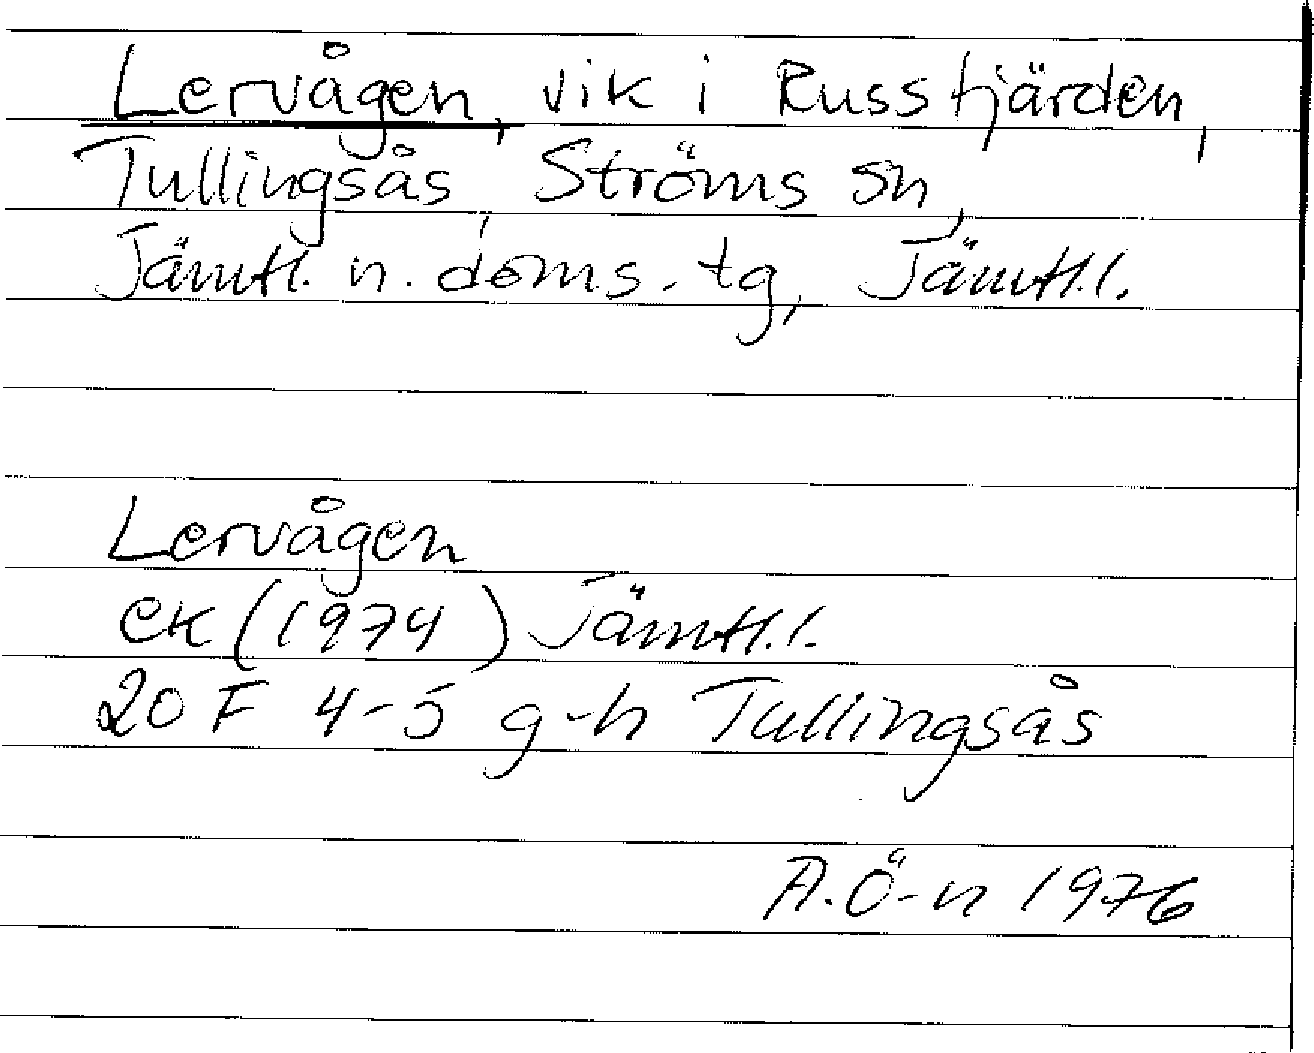 Lervågen, vik i Russfjärden,
Tullingsås, Ströms sn,
Jämtl. n. doms. tg, Jämtl.l.
Lervågen
ek (1974) Jämtl.l.
20 F 4-5 g-h Tullingsås
A.Ö-n 1976